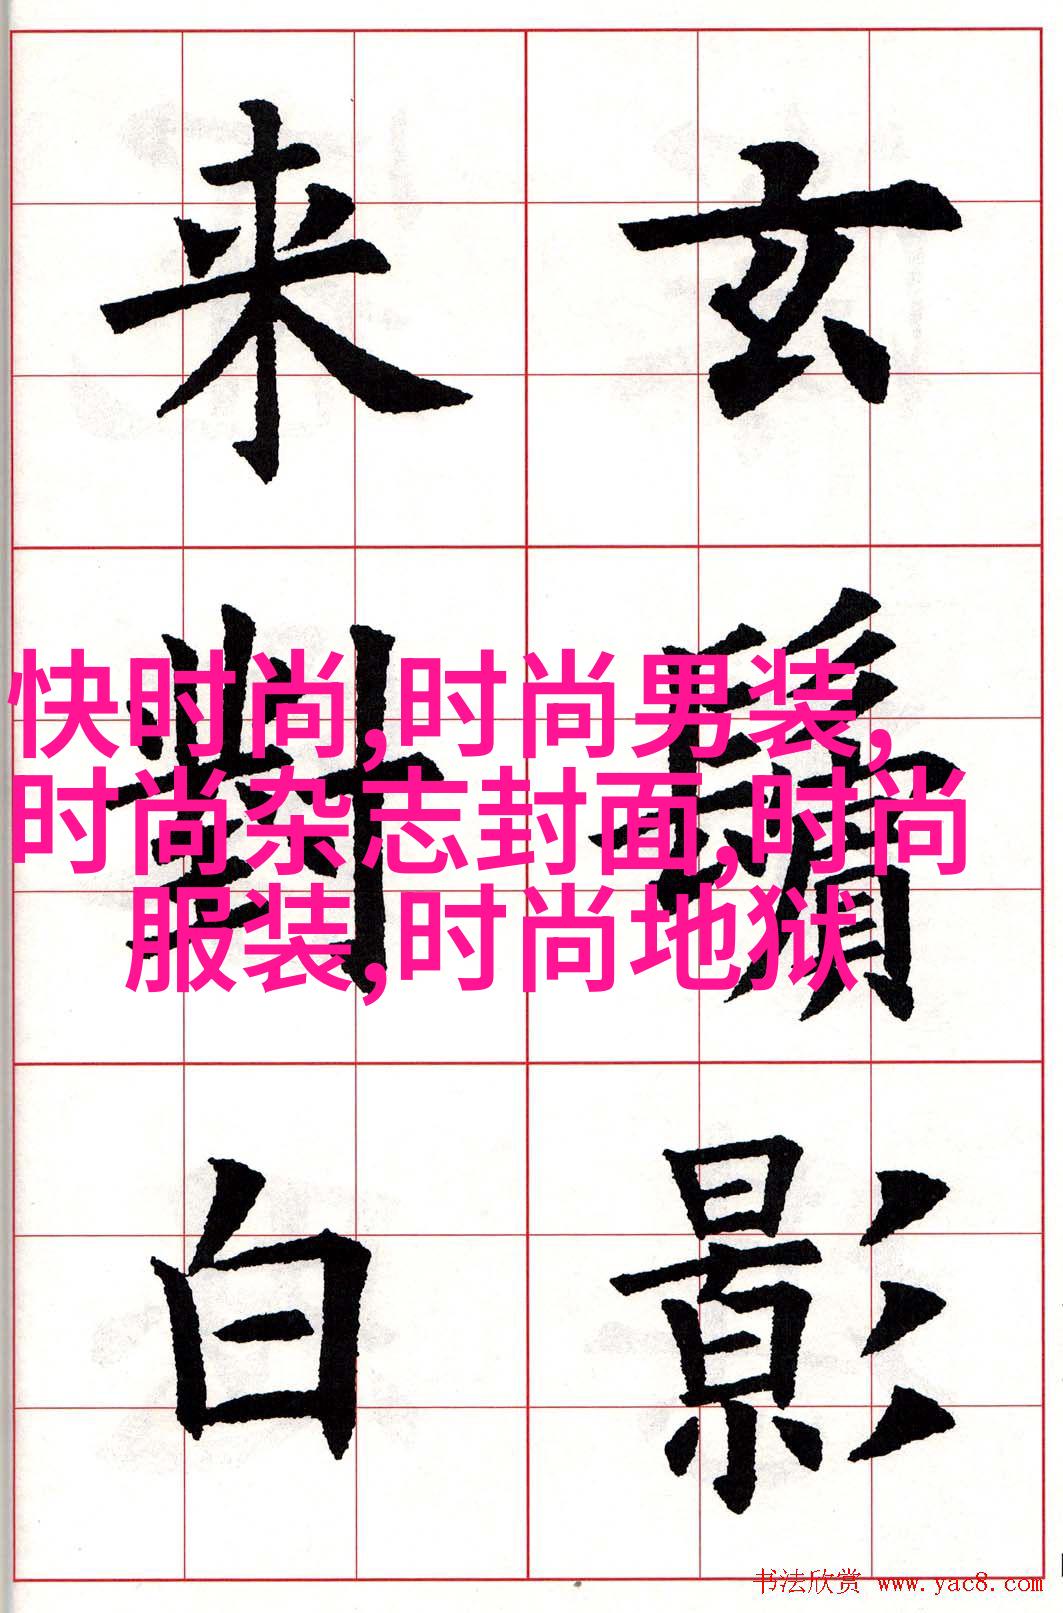 玄鬢影
来對白
快时尚,时尚男装,
时尚杂志封面,时尚
服装,时尚地狱
书法欣赏 www.yac8.com